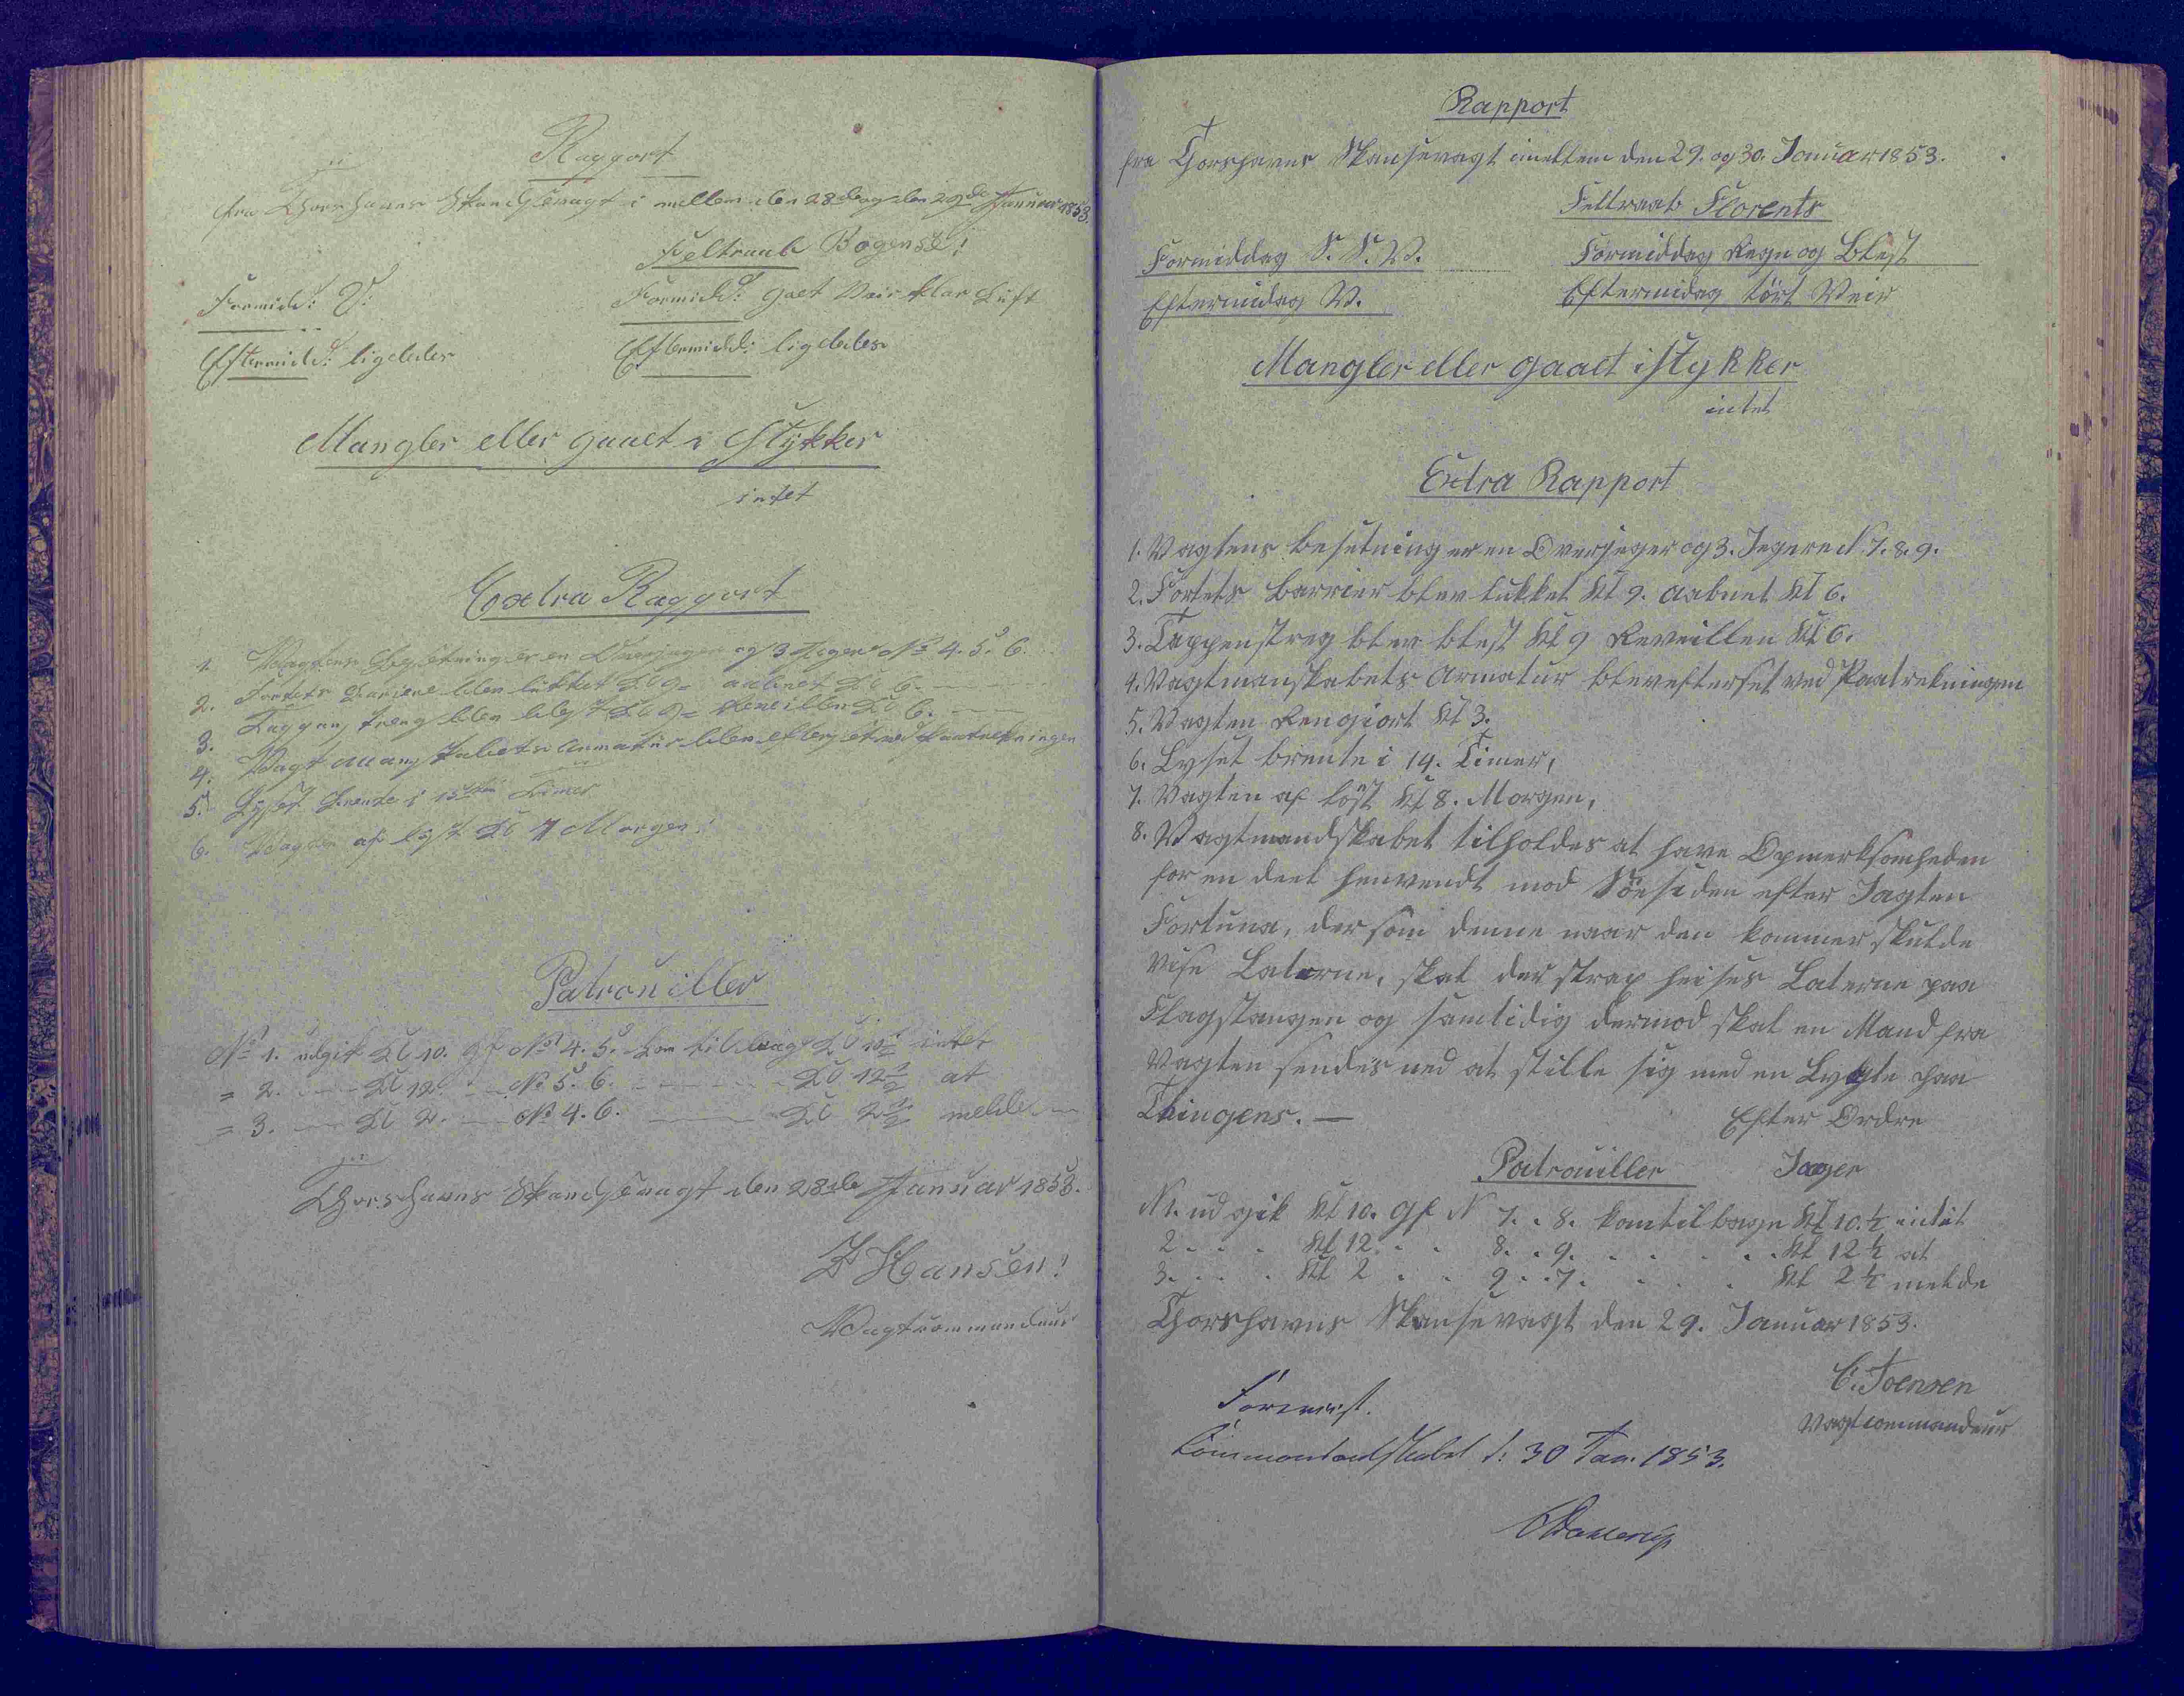 Rapport
fra Thorshavns Skandsevagt i mellem den 28de og den 29de Januar 1853.
Feltraab Bogense!
Formidd: V:
Formidd: gaet Veir klar Luft
Eftermidd: ligeledes
Eftermidd: ligeledes
Mangler eller gaaet i Stykker
intet
Extra Rapport
1. Vagtens Besetning er en Overjæger og 3 Jæger No 4. 5. 6.
2. Fortets Bariere blev lukket Kl 9 = aabnet Kl 6.
3. Tappenstreg blev blest Kl 9 = Reveillen Kl 6.
4. Vagtmanskabets Armatur blev efterset ved Paatrekningen
5. Lyset brente i 15 Timer
6. Vagten af löst Kl 7 Morgen!
Patrouiller
No 1. udgik Kl 10. Gf No 4. 5. kom tilbage Kl 10½ intet
= 2. Kl 12. No 5. 6. Kl 12½ at
= 3. Kl 2. No 4. 6. Kl 2½ melde
Thorshavns Skandsevagt den 28de Januar 1853.
Hansen!
Vagtcommandeur
Rapport
fra Thorshavns Skansevagt imellem den 29. og 30. Januar 1853.
Feltraab Florents
Formiddag S. S. V.
Formiddag Regn og Blest
Eftermidag V.
Eftermidag tört Veir
Mangler eller gaaet istykker
intet
Extra Rapport
1. Vagtens besetning er en Overjeger og 3. Jegere N. 7. 8. 9.
2. Fortets barrier blev lukket Kl 9. aabnet Kl 6.
3. Tappenstreg blev blest Kl 9 Reveillen Kl 6.
4. Vagtmanskabets Armatur blev efterset ved Paatrekningen
5. Vagten Rengiort Kl 3.
6. Lyset brente i 14. Timer,
7. Vagten af löst Kl 8. Morgen,
8. Vagtmandskabet tilholdes at have Opmerksomheden
for en deel henvendt mod Söesiden efter Jagten
Fortuna, dersom denne naar den kommer skulde
vise Laterne, skal der strax heises Laterne paa
Flagstangen og samtidig dermed skal en Mand fra
Vagten sendes ned at stille sig med en Lygte paa
Thingens. —
Efter Ordre
Patrouiller
Jager
N 1. udgik Kl 10. Gf N 7. . 8. kom tilbage Kl 10.½ intet
2. . . . Kl 12. . . 8. . 9. . . . . . Kl 12½ at
3. . . . Kl 2 . . 9. . 7. . . . . Kl 2½ melde
Thorshavns Skansevagt den 29. Januar 1853.
C. Joensen
Vagtcommandeur
Forevist.
Commandantskabet d: 30 Jan. 1853.